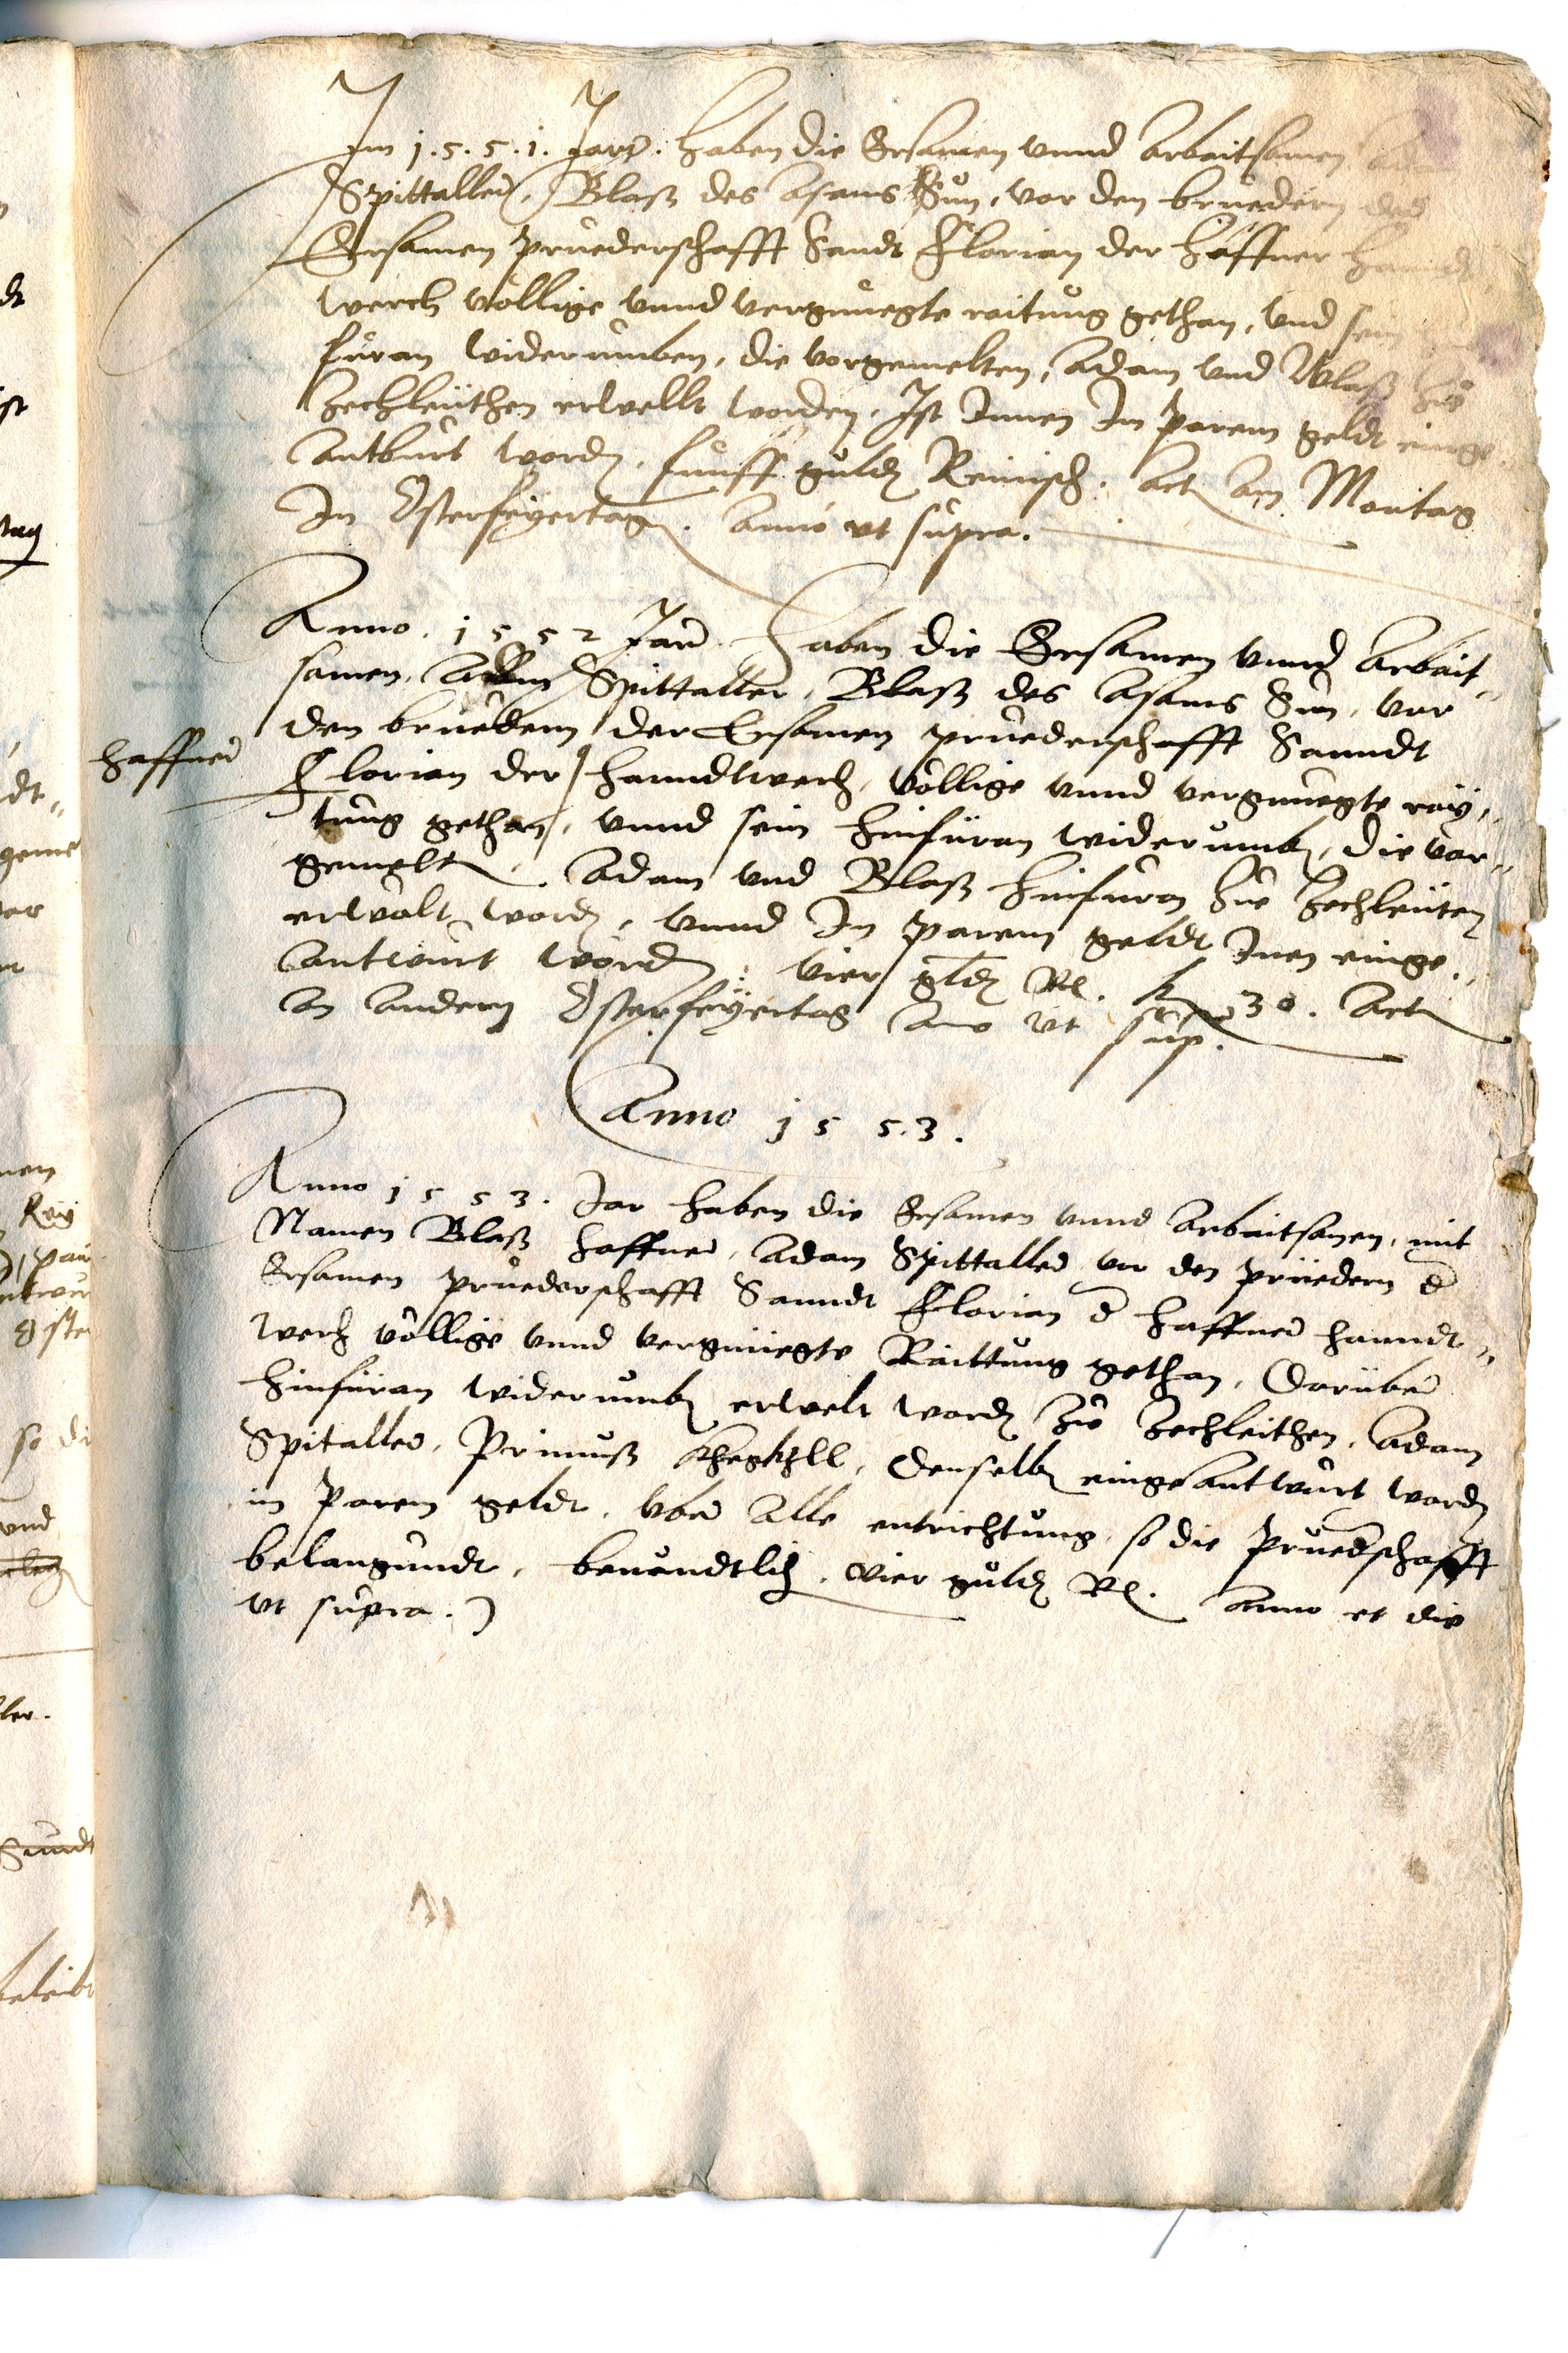 Im 1.5.5.1. Jars. haben die Ersamen vnnd Arbaitsamen
Spittaller, Blasz des Asams Sun, vor den bruedern des
Ersamen pruederschafft Sandt Florian der Haffner handt
werch völlige vnnd vergnuegte raitung gethan, vnd sein
füran widerumben, die vorgemelten, Adam vnd Blasz zu
Zechleuthen erwellt worden, Ist Innen In parem geldt einge
antburt wordn, funff guldn Reinisch. Act am Montag
In Osterfeyertag. Anno vt supra.
Anno. 1552 Jar. Haben die Ersamen vnnd Arbait„
samen, Spittaller, Blasz des Asams Sun, vor
den bruedern der Ersamen pruederschafft Sanndt
haffner
Florian der / hanndtwerch, völlige vnnd vergnuegte ray„
tung gethan, vnnd sein hinfüran widerumb, die vor„
gemelt, Adam vnd Blasz hinfuran zu Zechleuten
erwölt wordn, vnnd In parem geldt Inen einge„
antwurt wordn: vier gldn Rl. k 30. Act
an andern Osterfeyertag Ano vt sup.
Anno 1553.
Anno 1553. Jar haben die Ersamen vnnd Arbaitsamen, mit
Namen Blasz haffner, Adam Spittaller vor den prüedern d
Ersamen pruederschafft Sanndt Florian d haffner hanndt„
werch völlige vnnd vergnüegte Raittung gethan, Darüber
hinfüran widerumb erwelt wordn zu Zechleithen, Adam
Spitaller, Primusz, Denselbn eingeantwurt wordn
in Parem geldt, vber Alle entrichtung, so die Pruederschafft
belangundt, benendtlich, vier guldn Rl. Anno et die
vt supra.